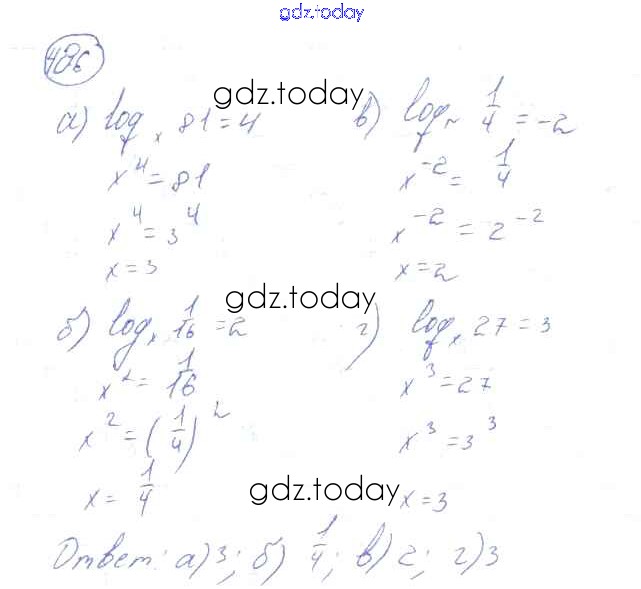 gdz.today
486
а) log_x 81 = 4
x^4 = 81
x^4 = 3^4
x = 3
gdz.today
в) log_x 1/4 = -2
x^-2 = 1/4
x^-2 = 2^-2
x = 2
gdz.today
б) log_x 1/16 = 2
x^2 = 1/16
x^2 = (1/4)^2
x = 1/4
г) log_x 27 = 3
x^3 = 27
x^3 = 3^3
x = 3
gdz.today
Ответ: а) 3; б) 1/4; в) 2; г) 3